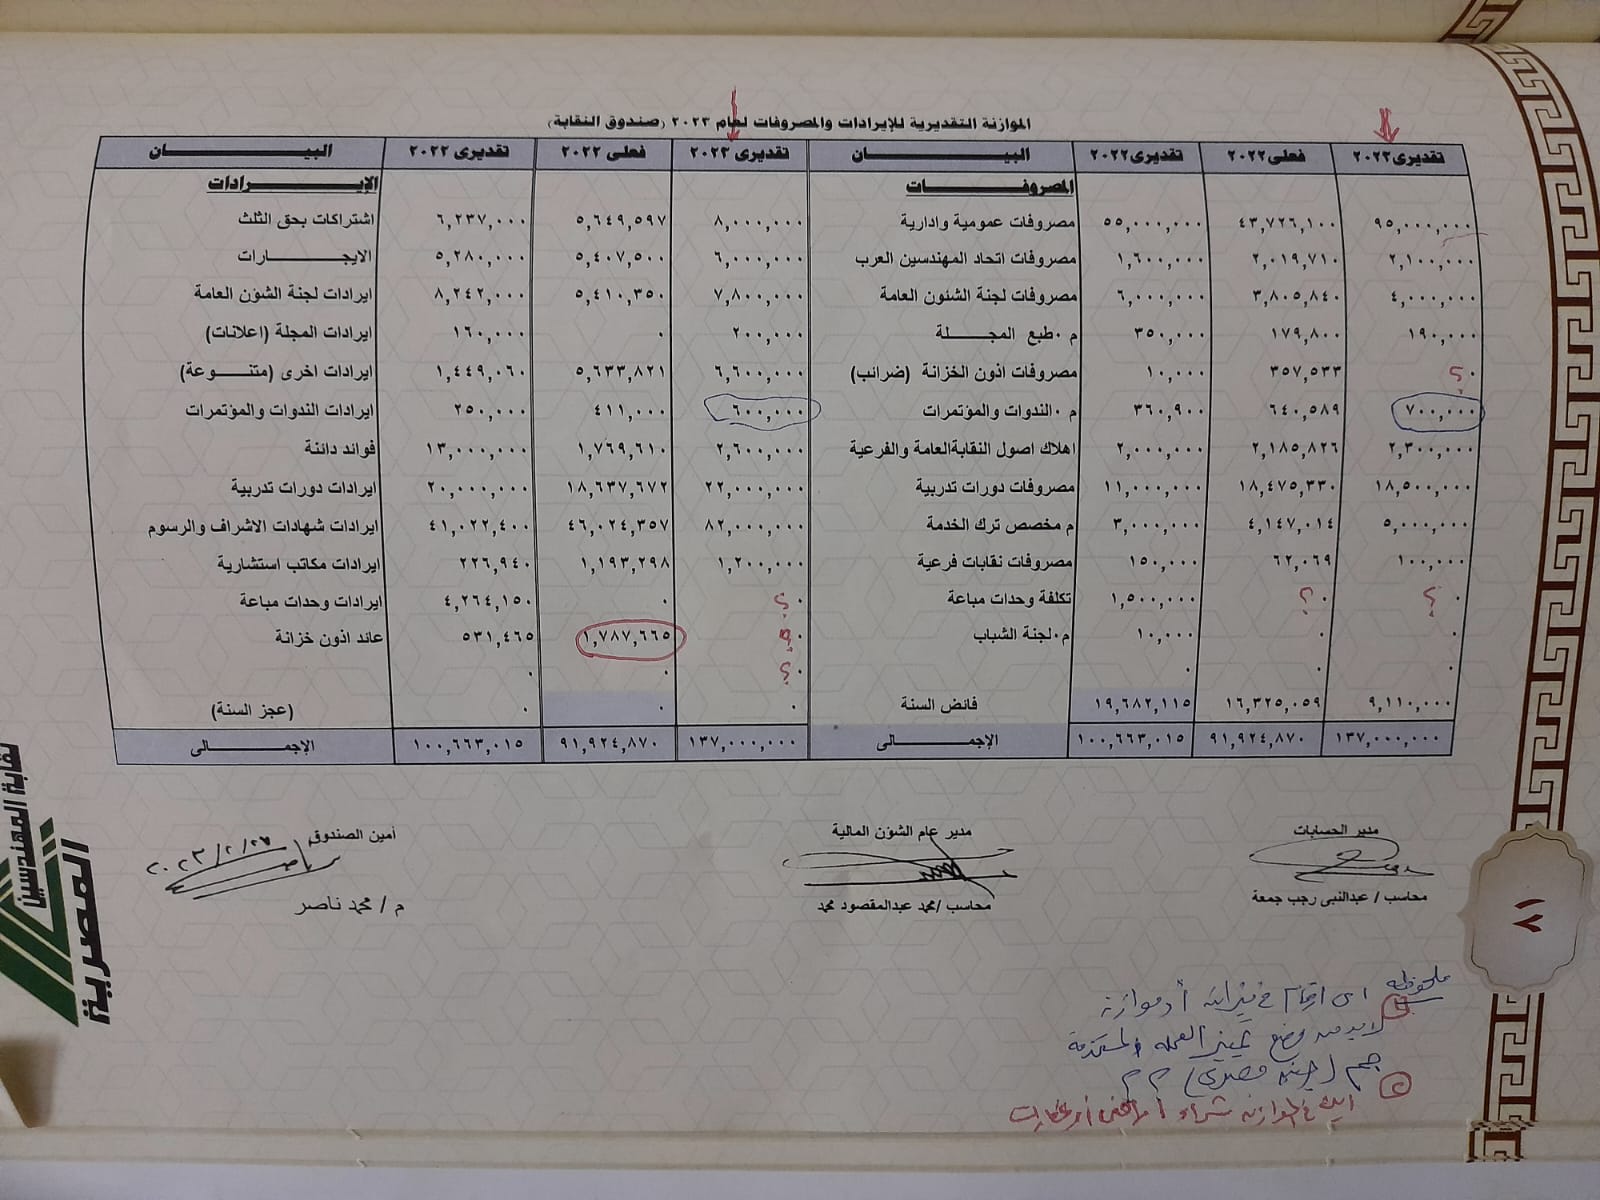 الموازنة التقديرية للإيرادات والمصروفات لعام ٢٠٢٣ (صندوق النقابة)
البيـــــــان تقديرى ٢٠٢٢ فعلى ٢٠٢٢ تقديرى ٢٠٢٣ البيـــــــان تقديرى٢٠٢٢ فعلى٢٠٢٢ تقديرى٢٠٢٣
الإيـــــــرادات المصروفـــــــات
اشتراكات بحق الثلث ٦,٢٣٧,٠٠٠ ٥,٦٤٩,٥٩٧ ٨,٠٠٠,٠٠٠ مصروفات عمومية وادارية ٥٥,٠٠٠,٠٠٠ ٤٣,٧٢٦,١٠٠ ٩٥,٠٠٠,٠٠٠
الايجـــــــارات ٥,٢٨٠,٠٠٠ ٥,٤٠٧,٥٠٠ ٦,٠٠٠,٠٠٠ مصروفات اتحاد المهندسين العرب ١,٦٠٠,٠٠٠ ٢,٠١٩,٧١٠ ٢,١٠٠,٠٠٠
ايرادات لجنة الشؤن العامة ٨,٢٤٢,٠٠٠ ٥,٤١٠,٣٥٠ ٧,٨٠٠,٠٠٠ مصروفات لجنة الشئون العامة ٦,٠٠٠,٠٠٠ ٣,٨٠٥,٨٤٠ ٤,٠٠٠,٠٠٠
ايرادات المجلة (اعلانات) ١٦٠,٠٠٠ ٠ ٢٠٠,٠٠٠ م ٠طبع المجـــــلة ٣٥٠,٠٠٠ ١٧٩,٨٠٠ ١٩٠,٠٠٠
ايرادات اخرى (متنـــوعة) ١,٤٤٩,٠٦٠ ٥,٦٣٣,٨٢١ ٦,٦٠٠,٠٠٠ مصروفات اذون الخزانة (ضرائب) ١٠,٠٠٠ ٣٥٧,٥٣٣ ٠ ؟
ايرادات الندوات والمؤتمرات ٢٥٠,٠٠٠ ٤١١,٠٠٠ ٦٠٠,٠٠٠ م ٠الندوات والمؤتمرات ٣٦٠,٩٠٠ ٦٤٠,٥٨٩ ٧٠٠,٠٠٠
فوائد دائنة ١٣,٠٠٠,٠٠٠ ١,٧٦٩,٦١٠ ٢,٦٠٠,٠٠٠ اهلاك اصول النقابةالعامة والفرعية ٢,٠٠٠,٠٠٠ ٢,١٨٥,٨٢٦ ٢,٣٠٠,٠٠٠
ايرادات دورات تدربية ٢٠,٠٠٠,٠٠٠ ١٨,٦٣٧,٦٧٢ ٢٢,٠٠٠,٠٠٠ مصروفات دورات تدربية ١١,٠٠٠,٠٠٠ ١٨,٤٧٥,٣٣٠ ١٨,٥٠٠,٠٠٠
ايرادات شهادات الاشراف والرسوم ٤١,٠٢٢,٤٠٠ ٤٦,٠٢٤,٣٥٧ ٨٢,٠٠٠,٠٠٠ م مخصص ترك الخدمة ٣,٠٠٠,٠٠٠ ٤,١٤٧,٠١٤ ٥,٠٠٠,٠٠٠
ايرادات مكاتب استشارية ٢٢٦,٩٤٠ ١,١٩٣,٢٩٨ ١,٢٠٠,٠٠٠ مصروفات نقابات فرعية ١٥٠,٠٠٠ ٦٢,٠٦٩ ١٠٠,٠٠٠
ايرادات وحدات مباعة ٤,٢٦٤,١٥٠ ٠ ٠ ؟ تكلفة وحدات مباعة ١,٥٠٠,٠٠٠ ٠ ؟ ٠ ؟
عائد اذون خزانة ٥٣١,٤٦٥ ١,٧٨٧,٦٦٥ ٠ ؟ م٠لجنة الشباب ١٠,٠٠٠ ٠ ٠
٠ ٠ ٠ ؟ ٠ ٠ ٠
(عجز السنة) ٠ ٠ ٠ فائض السنة ١٩,٦٨٢,١١٥ ١٦,٣٢٥,٠٥٩ ٩,١١٠,٠٠٠
الإجمـــــــالى ١٠٠,٦٦٣,٠١٥ ٩١,٩٢٤,٨٧٠ ١٣٧,٠٠٠,٠٠٠ الإجمـــــــالى ١٠٠,٦٦٣,٠١٥ ٩١,٩٢٤,٨٧٠ ١٣٧,٠٠٠,٠٠٠
مدير الحسابات مدير عام الشؤن المالية أمين الصندوق
٢٠٢٣/٢/٢٧
محاسب / عبدالنبى رجب جمعة محاسب /محمد عبدالمقصود محمد م / محمد ناصر
نقابة المهندسين
المصرية
١٧
ملحوظة
① اى ارقام فى ميزانية أو موازنة
لابد من وضع تمييز العملة المستخدمة
جم (جنيه مصرى) م م
② اين فى الموازنة شراء اراضى أو عقارات